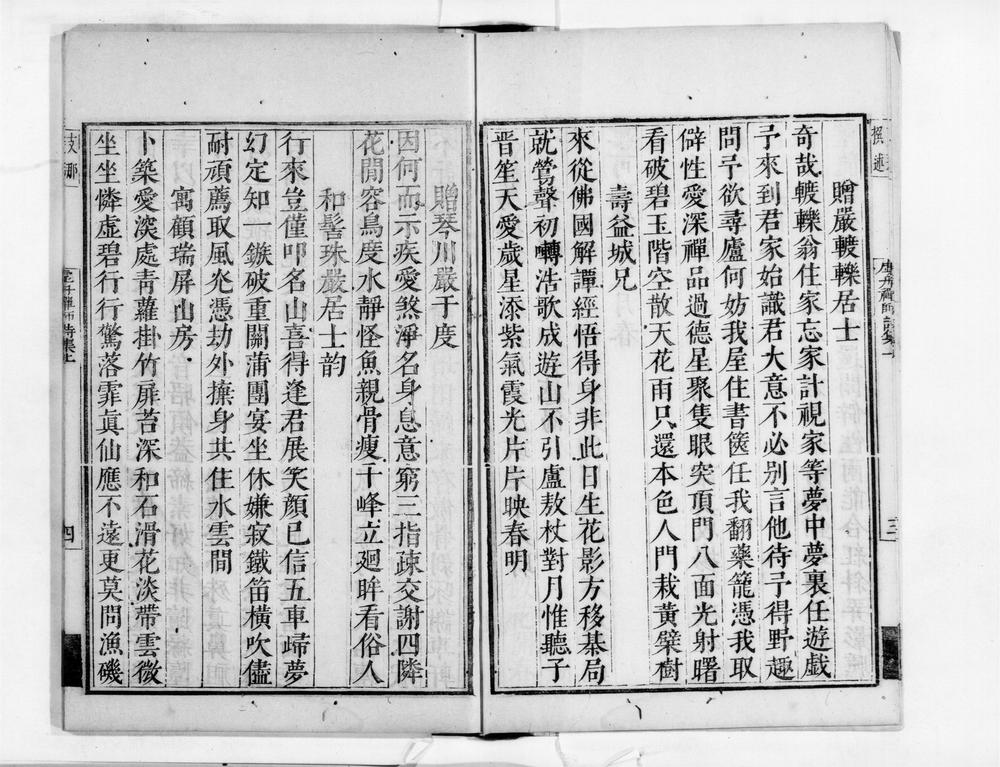 贈嚴轆轢居士
奇哉轆轢翁住家忘家計視家等夢中夢裏任遊戯
予來到君家始識君大意不必别言他待予得野趣
問予欲尋廬何妨我屋住書篋任我翻藥籠憑我取
僻性愛深禪品過德星聚隻眼突頂門八面光射曙
看破碧玉階空散天花雨只還本色人門栽黄檗樹
壽益城兄
來從佛國解譚經悟得身非此日生花影方移棊局
就鶯聲初囀浩歌成遊山不引盧敖杖對月惟聽子
晋笙天愛歲星添紫氣霞光片片映春明
贈琴川嚴于度
因何而示疾愛煞淨名身息意窮三指疎交謝四隣
花閒容鳥度水靜怪魚親骨瘦千峰立廻眸看俗人
和髻珠嚴居士韵
行來豈僅叩名山喜得逢君展笑顔已信五車歸夢
幻定知一鏃破重關蒲團宴坐休嫌寂鐵笛橫吹儘
耐頑薦取風光憑劫外攜身共住水雲間
寓顧瑞屏山房
卜築愛深處靑蘿掛竹扉苔深和石滑花淡帶雲微
坐坐憐虛碧行行驚落霏眞仙應不遠更莫問漁磯
撰述
三
支那
四